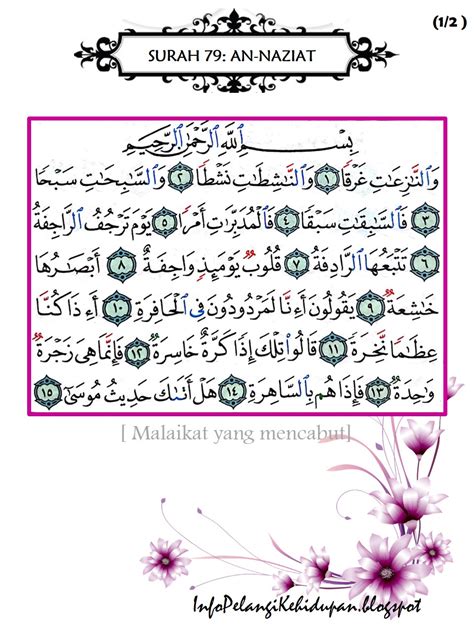 (1/2 )
SURAH 79: AN-NAZIAT
بِسْمِ اللَّهِ الرَّحْمَٰنِ الرَّحِيمِ
وَالنَّازِعَاتِ غَرْقًا ١ وَالنَّاشِطَاتِ نَشْطًا ٢ وَالسَّابِحَاتِ سَبْحًا
٣ فَالسَّابِقَاتِ سَبْقًا ٤ فَالْمُدَبِّرَاتِ أَمْرًا ٥ يَوْمَ تَرْجُفُ الرَّاجِفَةُ
٦ تَتْبَعُهَا الرَّادِفَةُ ٧ قُلُوبٌ يَوْمَئِذٍ وَاجِفَةٌ ٨ أَبْصَارُهَا
خَاشِعَةٌ ٩ يَقُولُونَ أَءِنَّا لَمَرْدُودُونَ فِي الْحَافِرَةِ ١٠ أَءِذَا كُنَّا
عِظَامًا نَّخِرَةً ١١ قَالُوا تِلْكَ إِذًا كَرَّةٌ خَاسِرَةٌ ١٢ فَإِنَّمَا هِيَ زَجْرَةٌ
وَاحِدَةٌ ١٣ فَإِذَا هُم بِالسَّاهِرَةِ ١٤ هَلْ أَتَاكَ حَدِيثُ مُوسَىٰ ١٥
[ Malaikat yang mencabut]
InfoPelangiKehidupan.blogspot